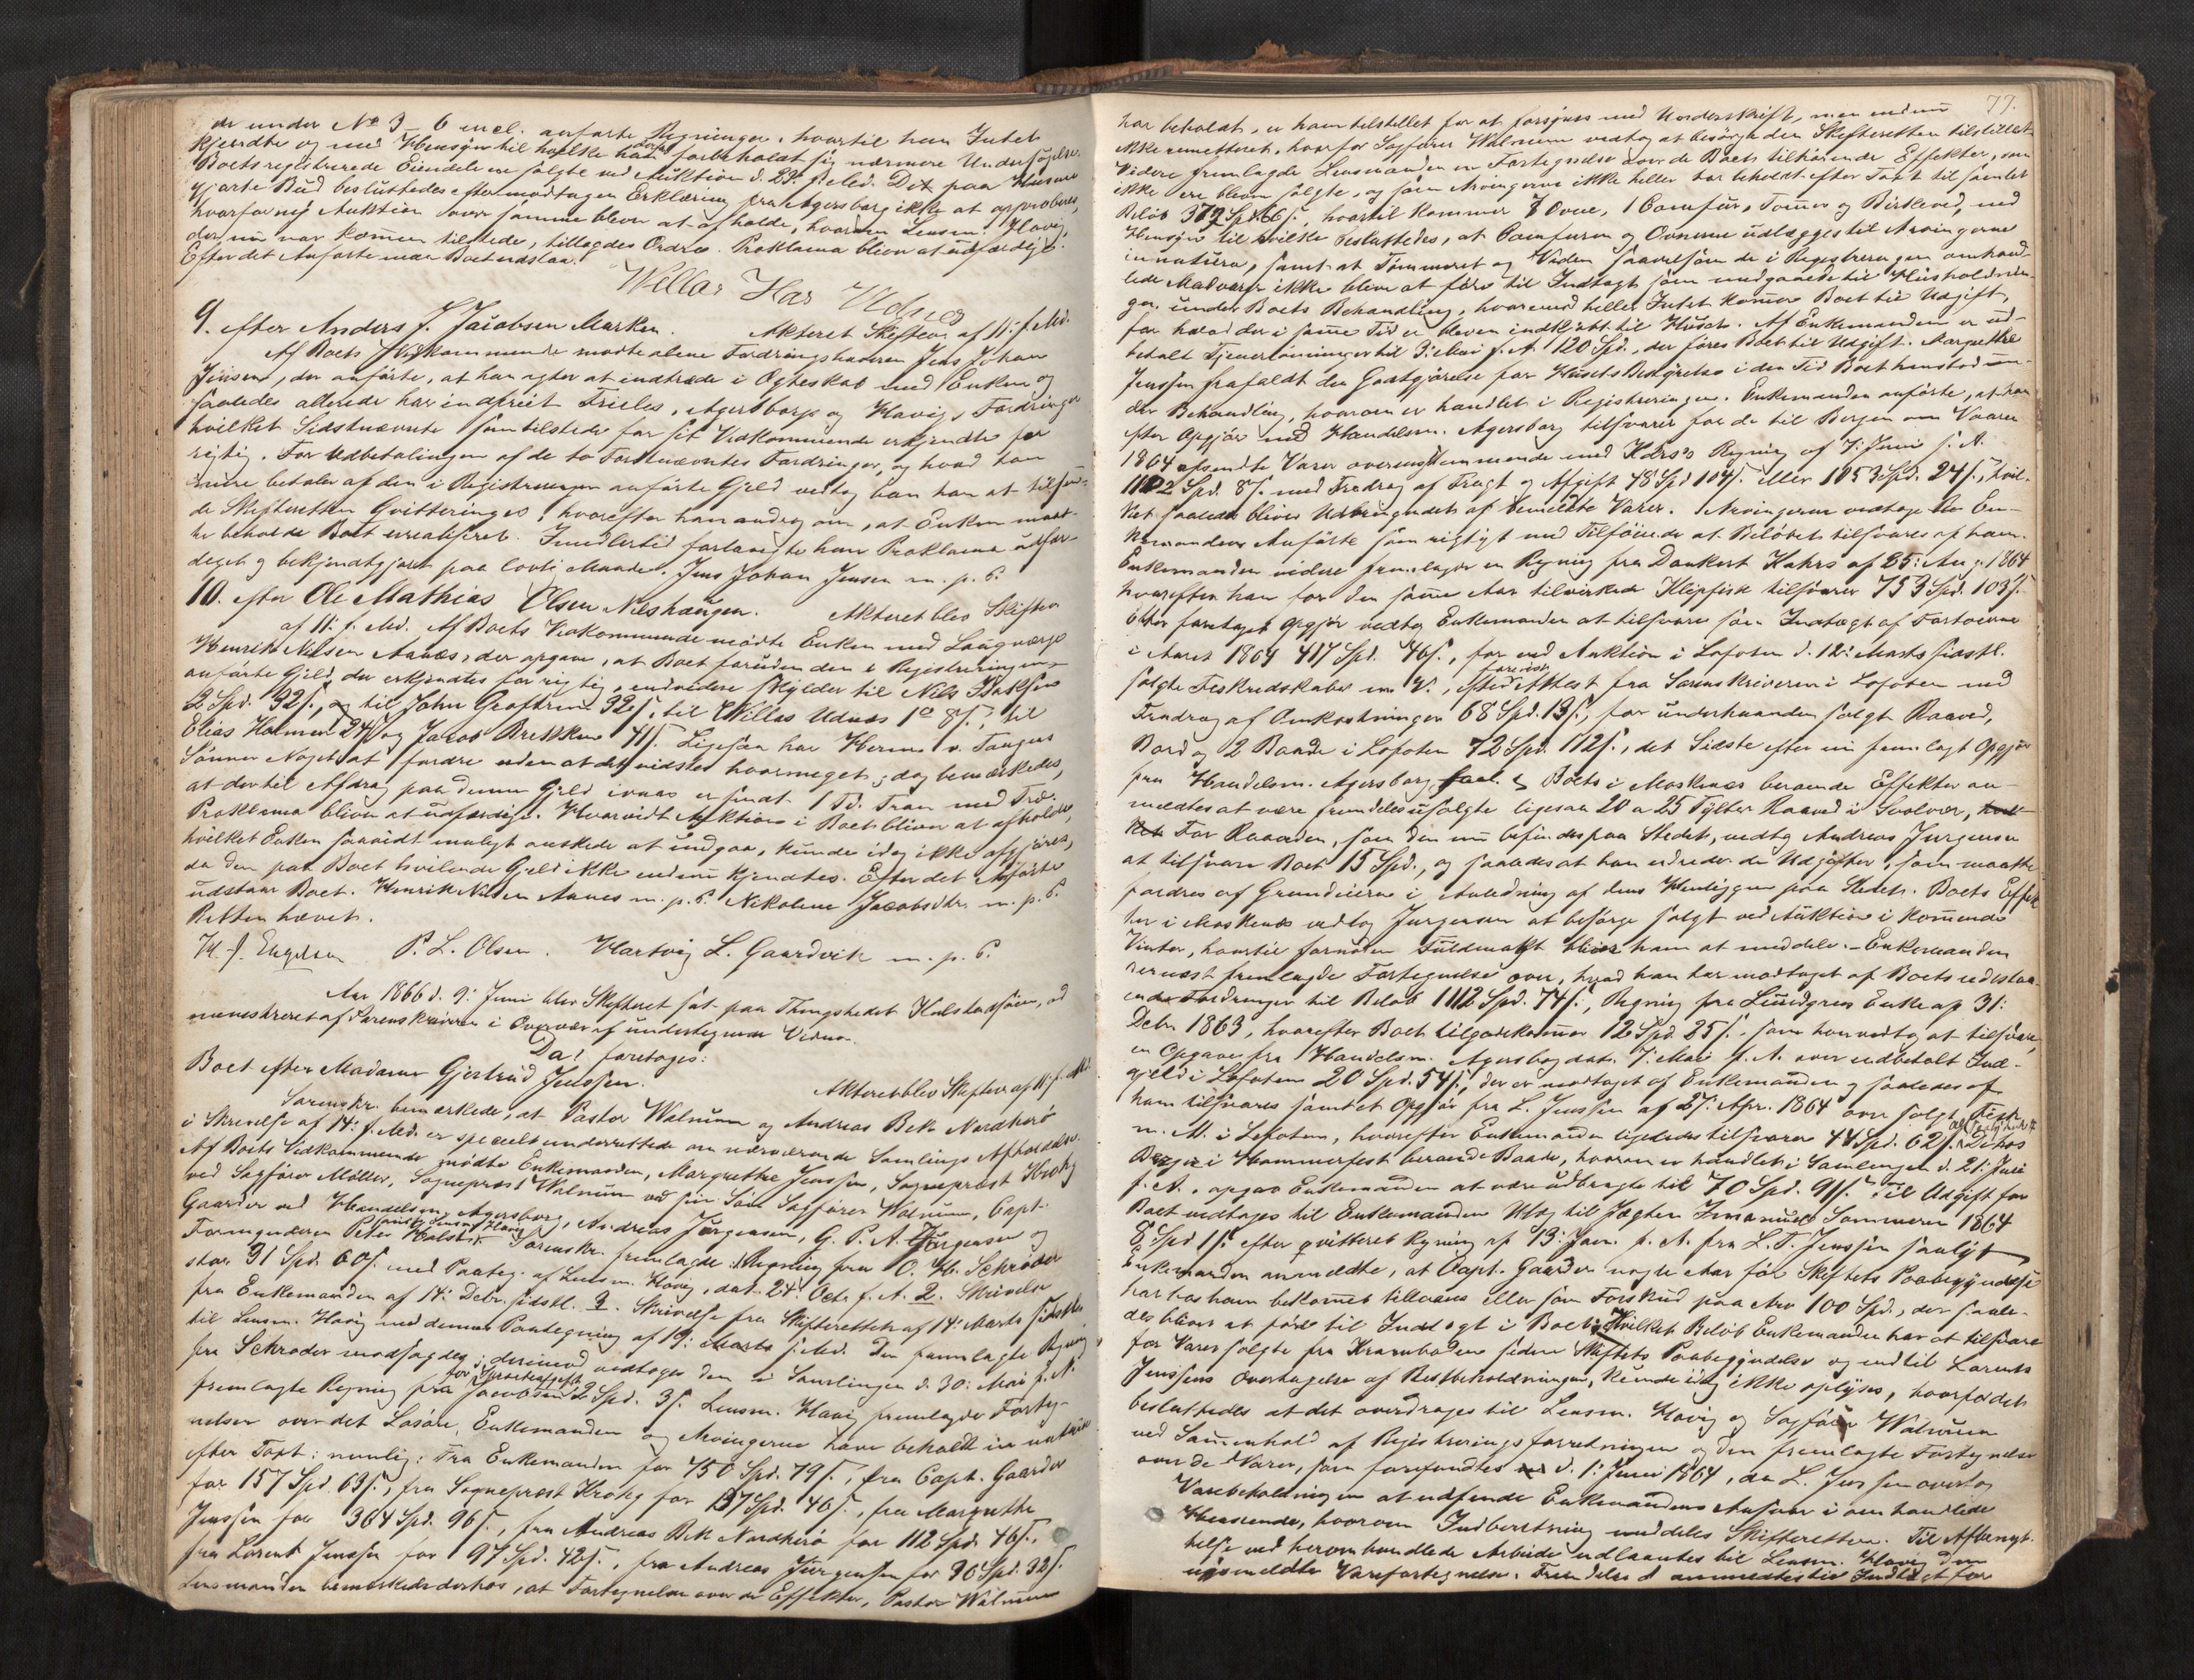 de under No 3 - 6 incl. anførte Regninger, hvortil han Intet
kjendte og med Hensyn til hvilke han forbeholdt sig nærmere Undersøgelse.
Boets registrerede Eiendele ere solgte ved Auktion d. 22: f. Md. Det paa Husene
gjorte Bud besluttedes efter modtagen Erklæring fra Agersborg ikke at approberes,
hvorfor ny Auktion over samme bliver at afholde, hvorom Lensm. Havig,
der nu var kommen tilstede, tillagdes Ordre. Proklama bliver at udfærdige.
Efter det Anførte maa Boet udstaa.
9. efter Anders J. Jacobsen Marken. Akteret Skiftebr. af 11: f. Md.
Af Boets Vedkommende mødte alene Fordringshaveren Jens Johan
Jensen, der anførte, at han agter at indtræde i Ægteskab med Enken og
saaledes allerede har indfriet Agersborgs og Havigs Fordringer
hvilket Sidstnævnte som tilstede for sit Vedkommende erkjendte for
rigtig. For Udbetalingen af de to Førstnævntes Fordringer, og hvad han
mere betaler af den i Registreringen anførte Gjeld vedtog han at tilsen-
de Skifteretten Qvitteringer, hvorefter han androg om, at Enken maat-
te beholde Boet urealiseret. Imidlertid forlangte han Proklama udfær-
diget og bekjendtgjort paa lovlig Maade. Jens Johan Jensen m. p. P.
10. efter Ole Mathias Olsen Nilshaugen. Akteret blev Skiftebr.
af 11: f. Md. Af Boets Vedkommende mødte Enken med Laugværge
Henrik Nilsen Aanæs, der opgave, at Boet foruden den i Registreringen
anførte Gjeld, der erkjendtes for rigtig, endvidere skylder til Nils
2 Spd. 32 s., og til John Groftrem 32 s., til Willas Udnæs 8 s., til
Elias Holmen 24 s. og Jacob Brekken 41 s. Ligesaa har Herm. v. Tangens
Sønner Noget at fordre uden at det vidstes hvormeget; dog bemærkedes,
at der til Afdrag paa denne Gjeld ivaar er sendt 1 Td. Tran med Træ.
Proklama bliver at udfærdige. Hvorvidt Auktion i Boet bliver at afholde,
hvilket Enken saavidt muligt ønskede at undgaa, kunde idag ikke afgjøres,
da den paa Boet hvilende Gjeld ikke endnu kjendtes. Efter det Anførte
udstaar Boet. Henrik Nilsen Aanæs m. p. P. Nikoline Jacobsdtr. m. p. P.
Retten hævet.
P. L. Olsen. Hartvig L. Gaardvik m. p. P.
Aar 1866 d. 9: Juni blev Skifteret sat paa Thingstedet, ad-
ministreret af Sorenskriveren i Overvær af undertegnede Vidner.
Da foretoges:
Boet efter Madame Gjertrud Jenssen. Akteret blev Skiftebr. af 11: f. Md.
Sorenskr. bemærkede, at Pastor Walnum og Andreas Bek Nordherø
i Skrivelse af 14: f. Md. er specielt underrettede om nærværende Samlings Afholdelse.
Af Boets Vedkommende mødte Enkemanden, Margrethe Jenssen, Sogneprest Krohg
ved Sagfører Møller, Sogneprest Walnum ved sin Søn Sagfører Walnum, Capt.
Gaarder ved Handelsm. Agersborg, Andreas Jürgensen, G. P. A. Jürgensen og
Formynderen Peter Holst. Sorenskr. fremlagde: 1. Regning fra O. Hb. Schrøder
stor 31 Spd. 60 s. med Paateg. af Lensm. Havig, dat. 24: Octr. f. A. 2. Skrivelse
fra Enkemanden af 14: Decbr. sidstl. 3. Skrivelse fra Skifteretten af 14: Marts sidstl.
til Lensm. Havig med dennes Paategning af 19: Marts s. Md. Den fremlagte Regning
fra Schrøder modsagdes; derimod vedtoges den i Samlingen d. 30: Mai f. A.
fremlagte Regning fra Jacobsen 2 Spd. 3 s. Lensm. Havig fremlagde Forteg-
nelser over det Løsøre, Enkemanden og Arvingerne have beholdt in natura
efter Taxt: nemlig: Fra Enkemanden for 450 Spd. 79 s., fra Capt. Gaarder
for 157 Spd. 63 s., fra Sogneprest Krohg for 137 Spd. 46 s., fra Margrethe
Jenssen for 364 Spd. 96 s., fra Andreas Bek Nordherø for 112 Spd. 46 s.,
fra Lorents Jenssen for 97 Spd. 42 s., fra Andreas Jürgensen for 90 Spd. 32 s.
Lensmanden bemærkede derhos, at Fortegnelsen over de Effekter, Pastor Walnum
77.
har beholdt, er ham tilstillet for at forsynes med Underskrift, men endnu
ikke remitteret, hvorfor Sagfører Walnum vedtog at besørge den Skifteretten tilstillet.
Videre fremlagde Lensmanden en Fortegnelse over de Boets tilhørende Effekter, som
ikke ere blevne solgte, og som Arvingerne ikke heller har beholdt efter Taxt til samlet
Beløb, hvortil kommer 7 Ovne, 1 Comfur, Tømmer og Birkeved, med
Hensyn til hvilke besluttedes, at Comfuren og Ovnene udlægges til Arvingerne
in natura, samt at Tømmeret og Veden saavelsom de i Registreringen omhand-
lede Madvarer ikke bliver at føre til Indtægt som medgaaede til Husholdnin-
gen under Boets Behandling, hvorimod heller Intet kommer Boet til Udgift,
for hvad der i samme Tid er bleven indkjøbt til Huset. Af Enkemanden er ud-
betalt Tjenerlønninger til 3: Mai f. A. 120 Spd., der føres Boet til Udgift. Margrethe
Jenssen frafaldt den Godtgjørelse for Husets Bestyrelse i den Tid Boet henstod un-
der Behandling, hvorom er handlet i Registreringen. Enkemanden anførte, at han
efter Opgjør med Handelsm. Agersborg tilsvarer for de til Bergen om Vaaren
1864 afsendte Varer overensstemmende med Kahrs's Regning af 7: Juni s. A.
1102 Spd. 8 s. med Fradrag af Fragt og Afgift 48 Spd 104 s. eller 1053 Spd. 24 s., hvil-
ket saaledes bliver Udbringendet af bemeldte Varer. Arvingerne vedtoge En-
kemandens Anførte som rigtigt med Tilføiende at Beløbet tilsvares af ham.
Enkemanden videre fremlagde en Regning fra Dankert Kahrs af 25: Aug. 1864
hvorefter han for den samme Aar tilvirkede Klipfisk tilsvarer 753 Spd. 103 s.
Efter foretaget Opgjør vedtog Enkemanden at tilsvare som Indtægt af Fartøierne
i Aaret 1864 417 Spd. 46 s., for ved Auktion i Lofoten d. 12: Marts sidstl.
solgte Fiskeredskaber m. V., efter forevist Attest fra Sorenskriveren i Lofoten med
Fradrag af Omkostninger 68 Spd. 13 s., for underhaanden solgt Raaved,
Bord og 2 Baade i Lofoten 72 Spd. 112 s., det Sidste efter en fremlagt Opgjør
fra Handelsm. Agersborg. Boets i Moskenes beroende Effekter an-
meldtes at være fremdeles usolgte ligesaa 20 a 25 Tylter Raaved i Svolvær,
For Raaveden, som den nu befindes paa Stedet, vedtog Andreas Jürgensen
at tilsvare Boet 15 Spd., og saaledes at han udreder de Udgifter, som maatte
fordres af Grundeieren i Anledning af dens Henliggen paa Stedet. Boets Effek-
ter i Moskenes vedtog Jürgensen at besørge solgt ved Auktion i kommende
Vinter, hvortil fornøden Fuldmagt bliver ham at meddele. - Enkemanden
dernæst fremlagde Fortegnelse over, hvad han har modtaget af Boets udestaa-
ende Fordringer til Beløb 1112 Spd. 74 s., Regning fra Lundgrens Enke af 31:
Decbr. 1863, hvorefter Boet tilgodekommer 12 Spd. 25 s. som han vedtog at tilsvare,
en Opgave fra Handelsm. Agersborg dat. 7: Mai f. A. over udbetalt Ind-
gjeld i Lofoten 20 Spd. 54 s., der er modtaget af Enkemanden og saaledes af
ham tilsvares samt et Opgjør fra L. Jenssen af 27: Apr. 1864 over solgt Fisk
m. M. i Lofoten, hvorefter Enkemanden ligeledes tilsvarer 44 Spd. 62 s.
i Hammerfest beroende Baade, hvorom er handlet i Samlingen d. 21: Juni
f. A., opgav Enkemanden at være udbragte til 70 Spd. 91 s. Til Udgift for
Boet vedtoges til Enkemanden Udlæg til Jægten Immanuel Sommeren 1864
8 Spd 1 s. efter qvitteret Regning af 13: Jan. f. A. fra L. T. Jenssen
Enkemanden anmeldte, at Capt. Gaarder nogle Aar før Skiftets Paabegyndelse
har hos ham bekommet tillaans eller som Forskud paa Arv 100 Spd., der saale-
des bliver at føre til Indtægt i Boet. Hvilket Beløb Enkemanden har at tilsvare
for Varer solgte fra Kramboden siden Skiftets Paabegyndelse og indtil Lorents
Jenssens Overtagelse af Restbeholdningen, kunde idag ikke oplyses, hvorfor det
besluttedes at det overdrages til Lensm. Havig og Sagfører Walnum
ved Sammenhold af Registreringsforretningen og den fremlagte Fortegnelse
over de Varer, som forefandtes d. 1: Juni 1864, da L. Jenssen overtog
Varebeholdningen at udfinde Enkemandens Ansvar i omhandlede
Henseende, hvorom Indberetning meddeles Skifteretten. Til Afbenyt-
telse ved herom handlede Arbeide udlaantes til Lensm. Havig den
ommeldte Varefortegnelse. Fremdeles anmeldtes til Indtægt for